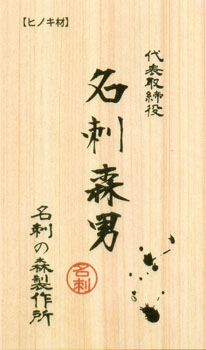 【ヒノキ材】
代表取締役
名刺森男
名刺の森製作所
名刺